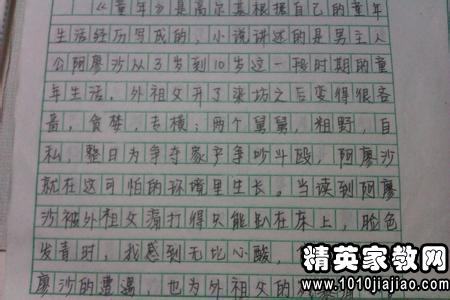 《童年》是高尔基根据自己的童年
生活经历写成的，小说讲述的是男主人
公阿廖沙从3岁到10岁这一段时期的童
年生活。外祖父开了染坊之后变得很吝
啬，贪婪，专横；两个舅舅，粗野，自
私，整日为争夺家产争吵斗殴，阿廖沙
就在这可怕的环境里生长。当读到阿廖
沙被外祖父痛打得只能趴在床上，脸色
发青时，我感到无比心酸，
廖沙的遭遇，也为外祖父的
精英家教网
www.1010jiajiao.com